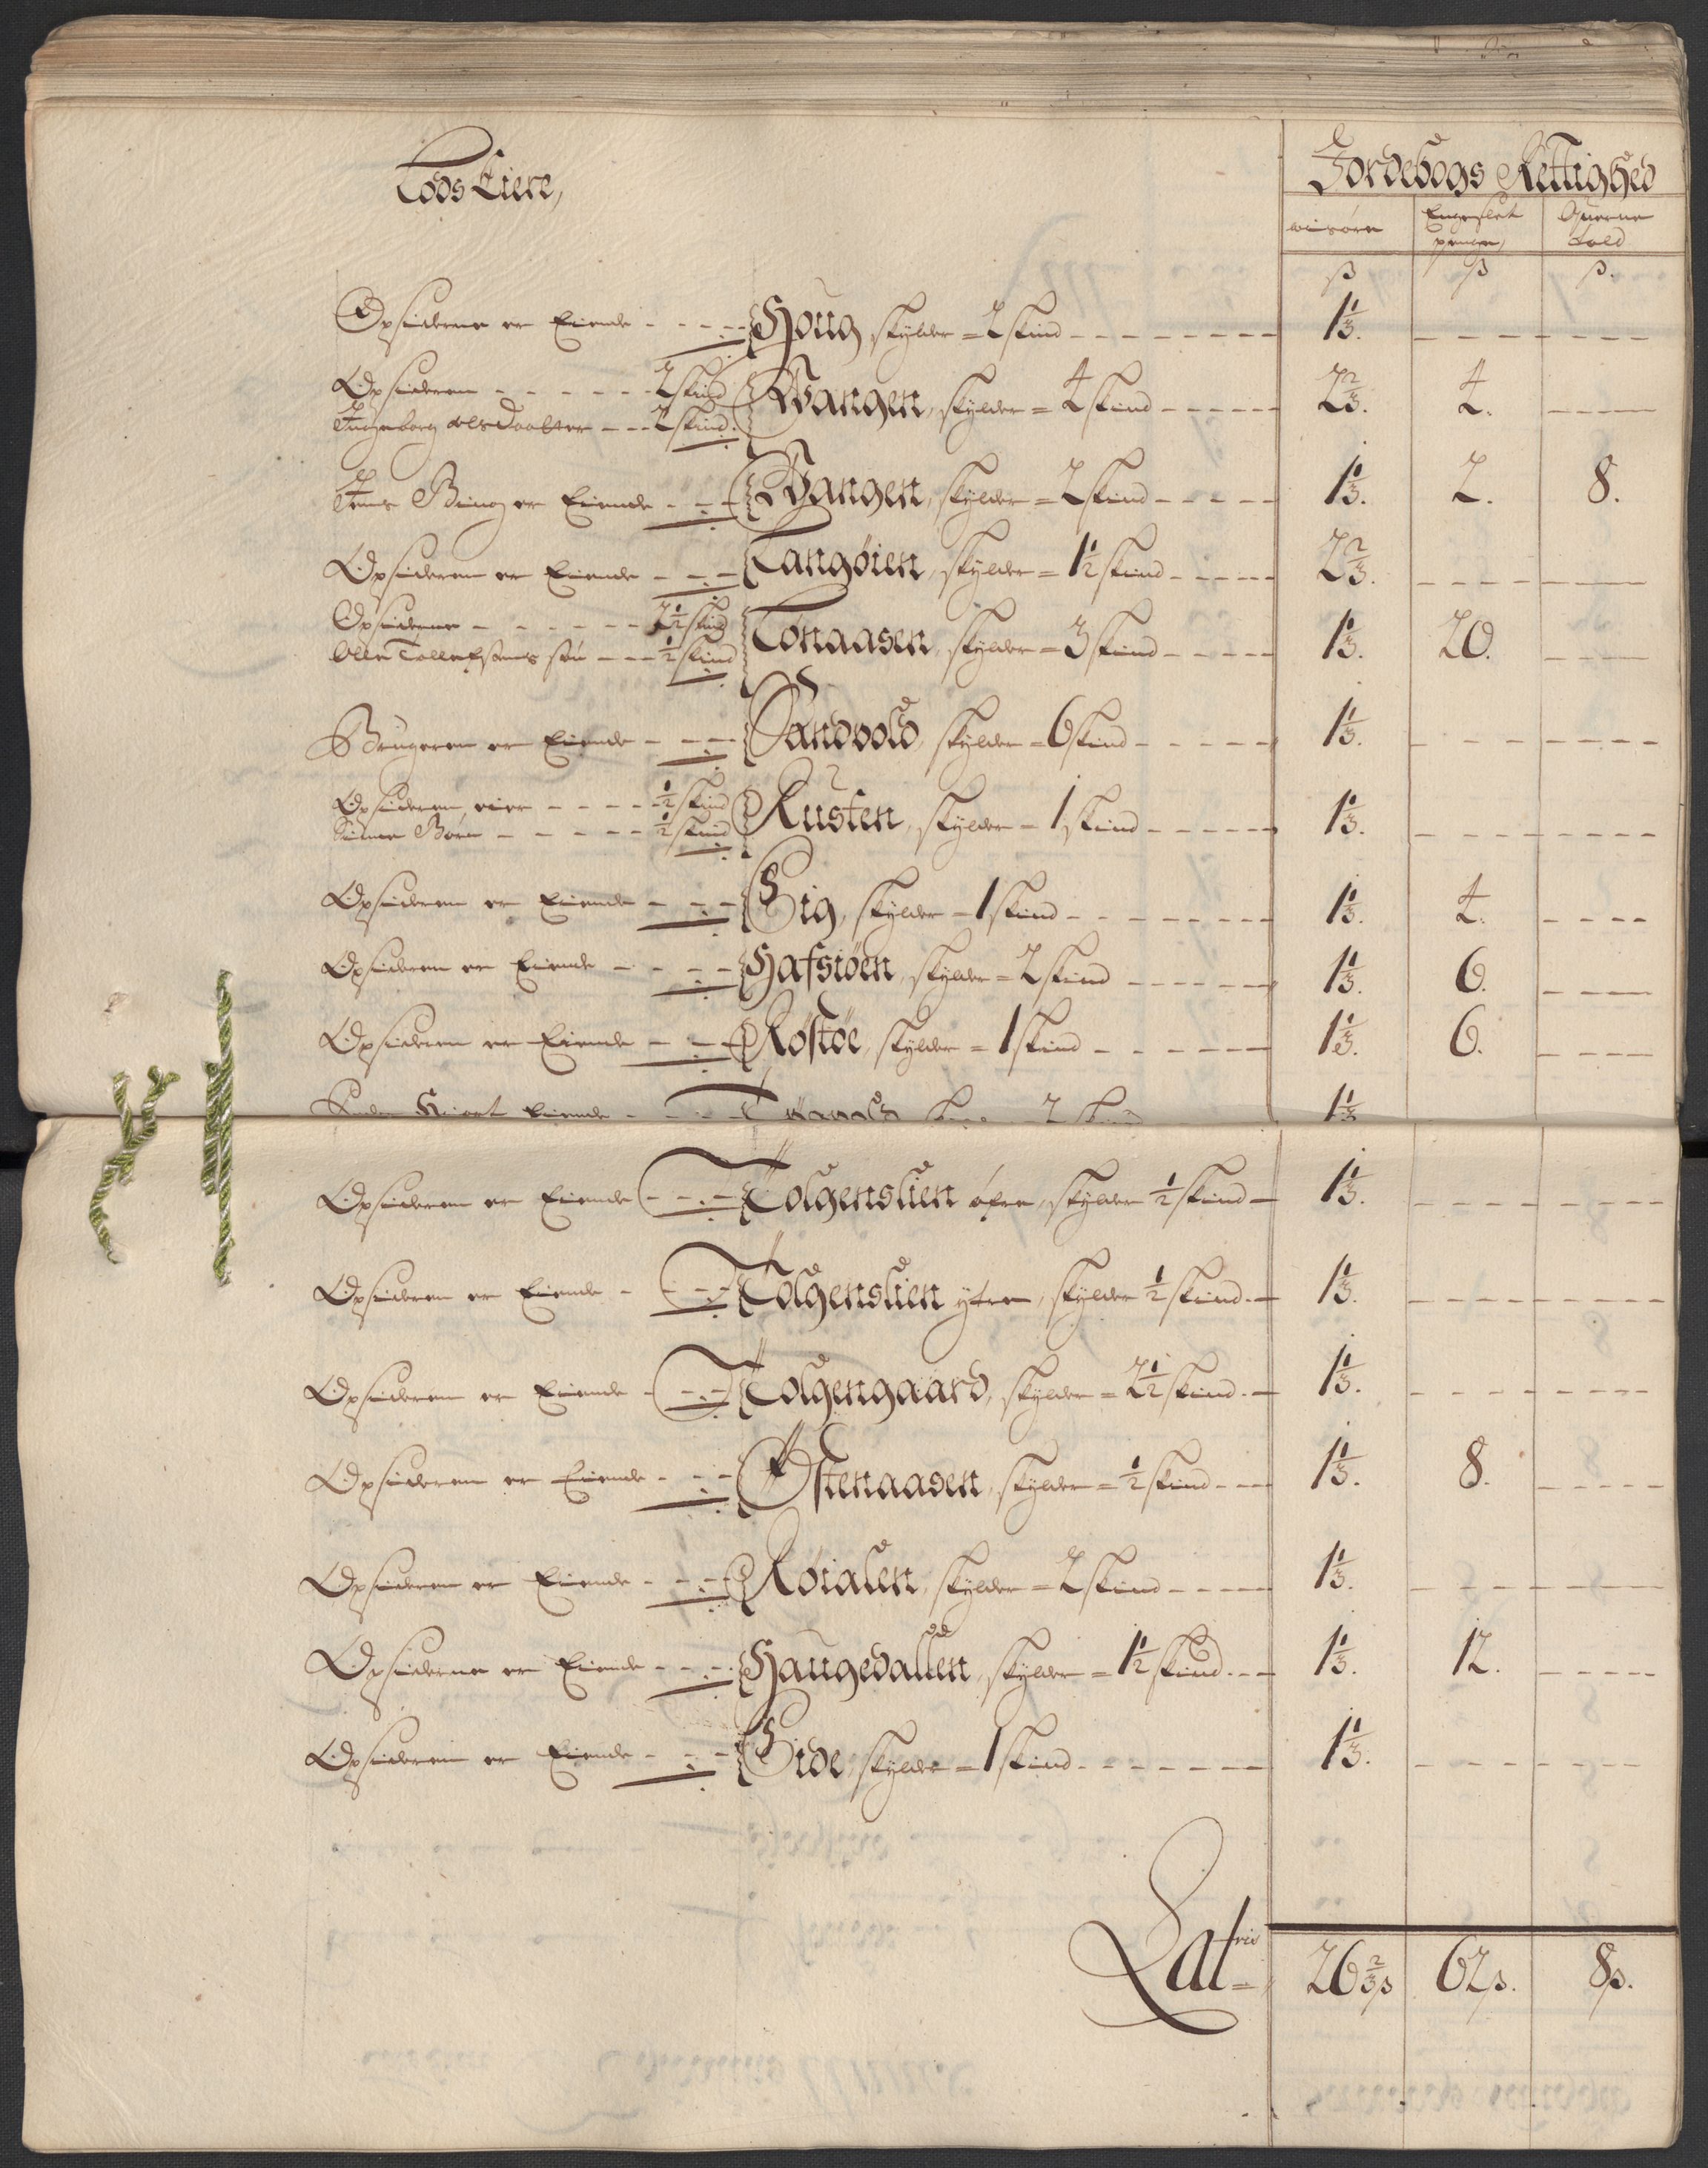 Lods Eiere, Jordebogs Rettighed
wisøre Engeslet Querne
penge, told
ß ß ß.
Opsiderne er Eiende - - - - Houg skylder = 2 skind - - - 1 1/3. - - - -
Opsideren - - - - - 2 skind
Wangen, skylder = 4 skind - - - 2 2/3. 4. - - -
Ingeborg olsdaatter - - 2 skind.
Jens Bing er Eiende - - - Wangen, skylder = 2 skind - - - 1 1/3. 2. 8.
Opsideren er Eiende - - - Langøien, skylder = 1 1/2 skind - - - 2 2/3. - - - -
Opsiderne - - - - - 2 1/2 skind
Tønaasen, skylder = 3 skind - - - 1 1/3. 20. - - -
Olle Tollefsens søn - - 1/2 skind
Brugeren er Eiende - - - Sandvold, skylder = 6 skind - - - 1 1/3. - - - -
Opsideren, eier - - - - 1/2 skind
Kusten, skylder = 1 skind - - - 1 1/3. - - - -
Simen Børn - - - - 1/2 skind
Opsideren er Eiende - - - Sig, skylder = 1 skind - - - 1 1/3. 4. - - -
Opsideren er Eiende - - - - Hafsiøen, skylder = 2 skind - - - 1 1/3. 6. - - -
Opsideren er Eiende - - - Røstøe, skylder = 1 skind - - - 1 1/3. 6. - - -
Eiende - - - 2 skind 1 1/3
Opsideren er Eiende - - - Tolgenslien øfre, skylder 1/2 skind - 1 1/3. - - - -
Opsideren er Eiende - - - Tolgenslien ytre, skylder 1/2 skind. - 1 1/3. - - - -
Opsideren er Eiende - - - Tolgengaard, skylder = 2 1/2 skind. - 1 1/3. - - - -
Opsideren er Eiende - - - Østenaasen, skylder = 1/2 skind - - - 1 1/3. 8. - - -
Opsideren er Eiende - - - Røialen, skylder = 2 skind - - - 1 1/3. - - - -
Opsiderne er Eiende - - - Haugedallen, skylder = 1 1/2 skind. - - 1 1/3. 12. - - -
Opsideren er Eiende - - - Side, skylder = 1 skind - - - 1 1/3. - - - -
Latris = 26 2/3 ß 62 ß. 8 ß.